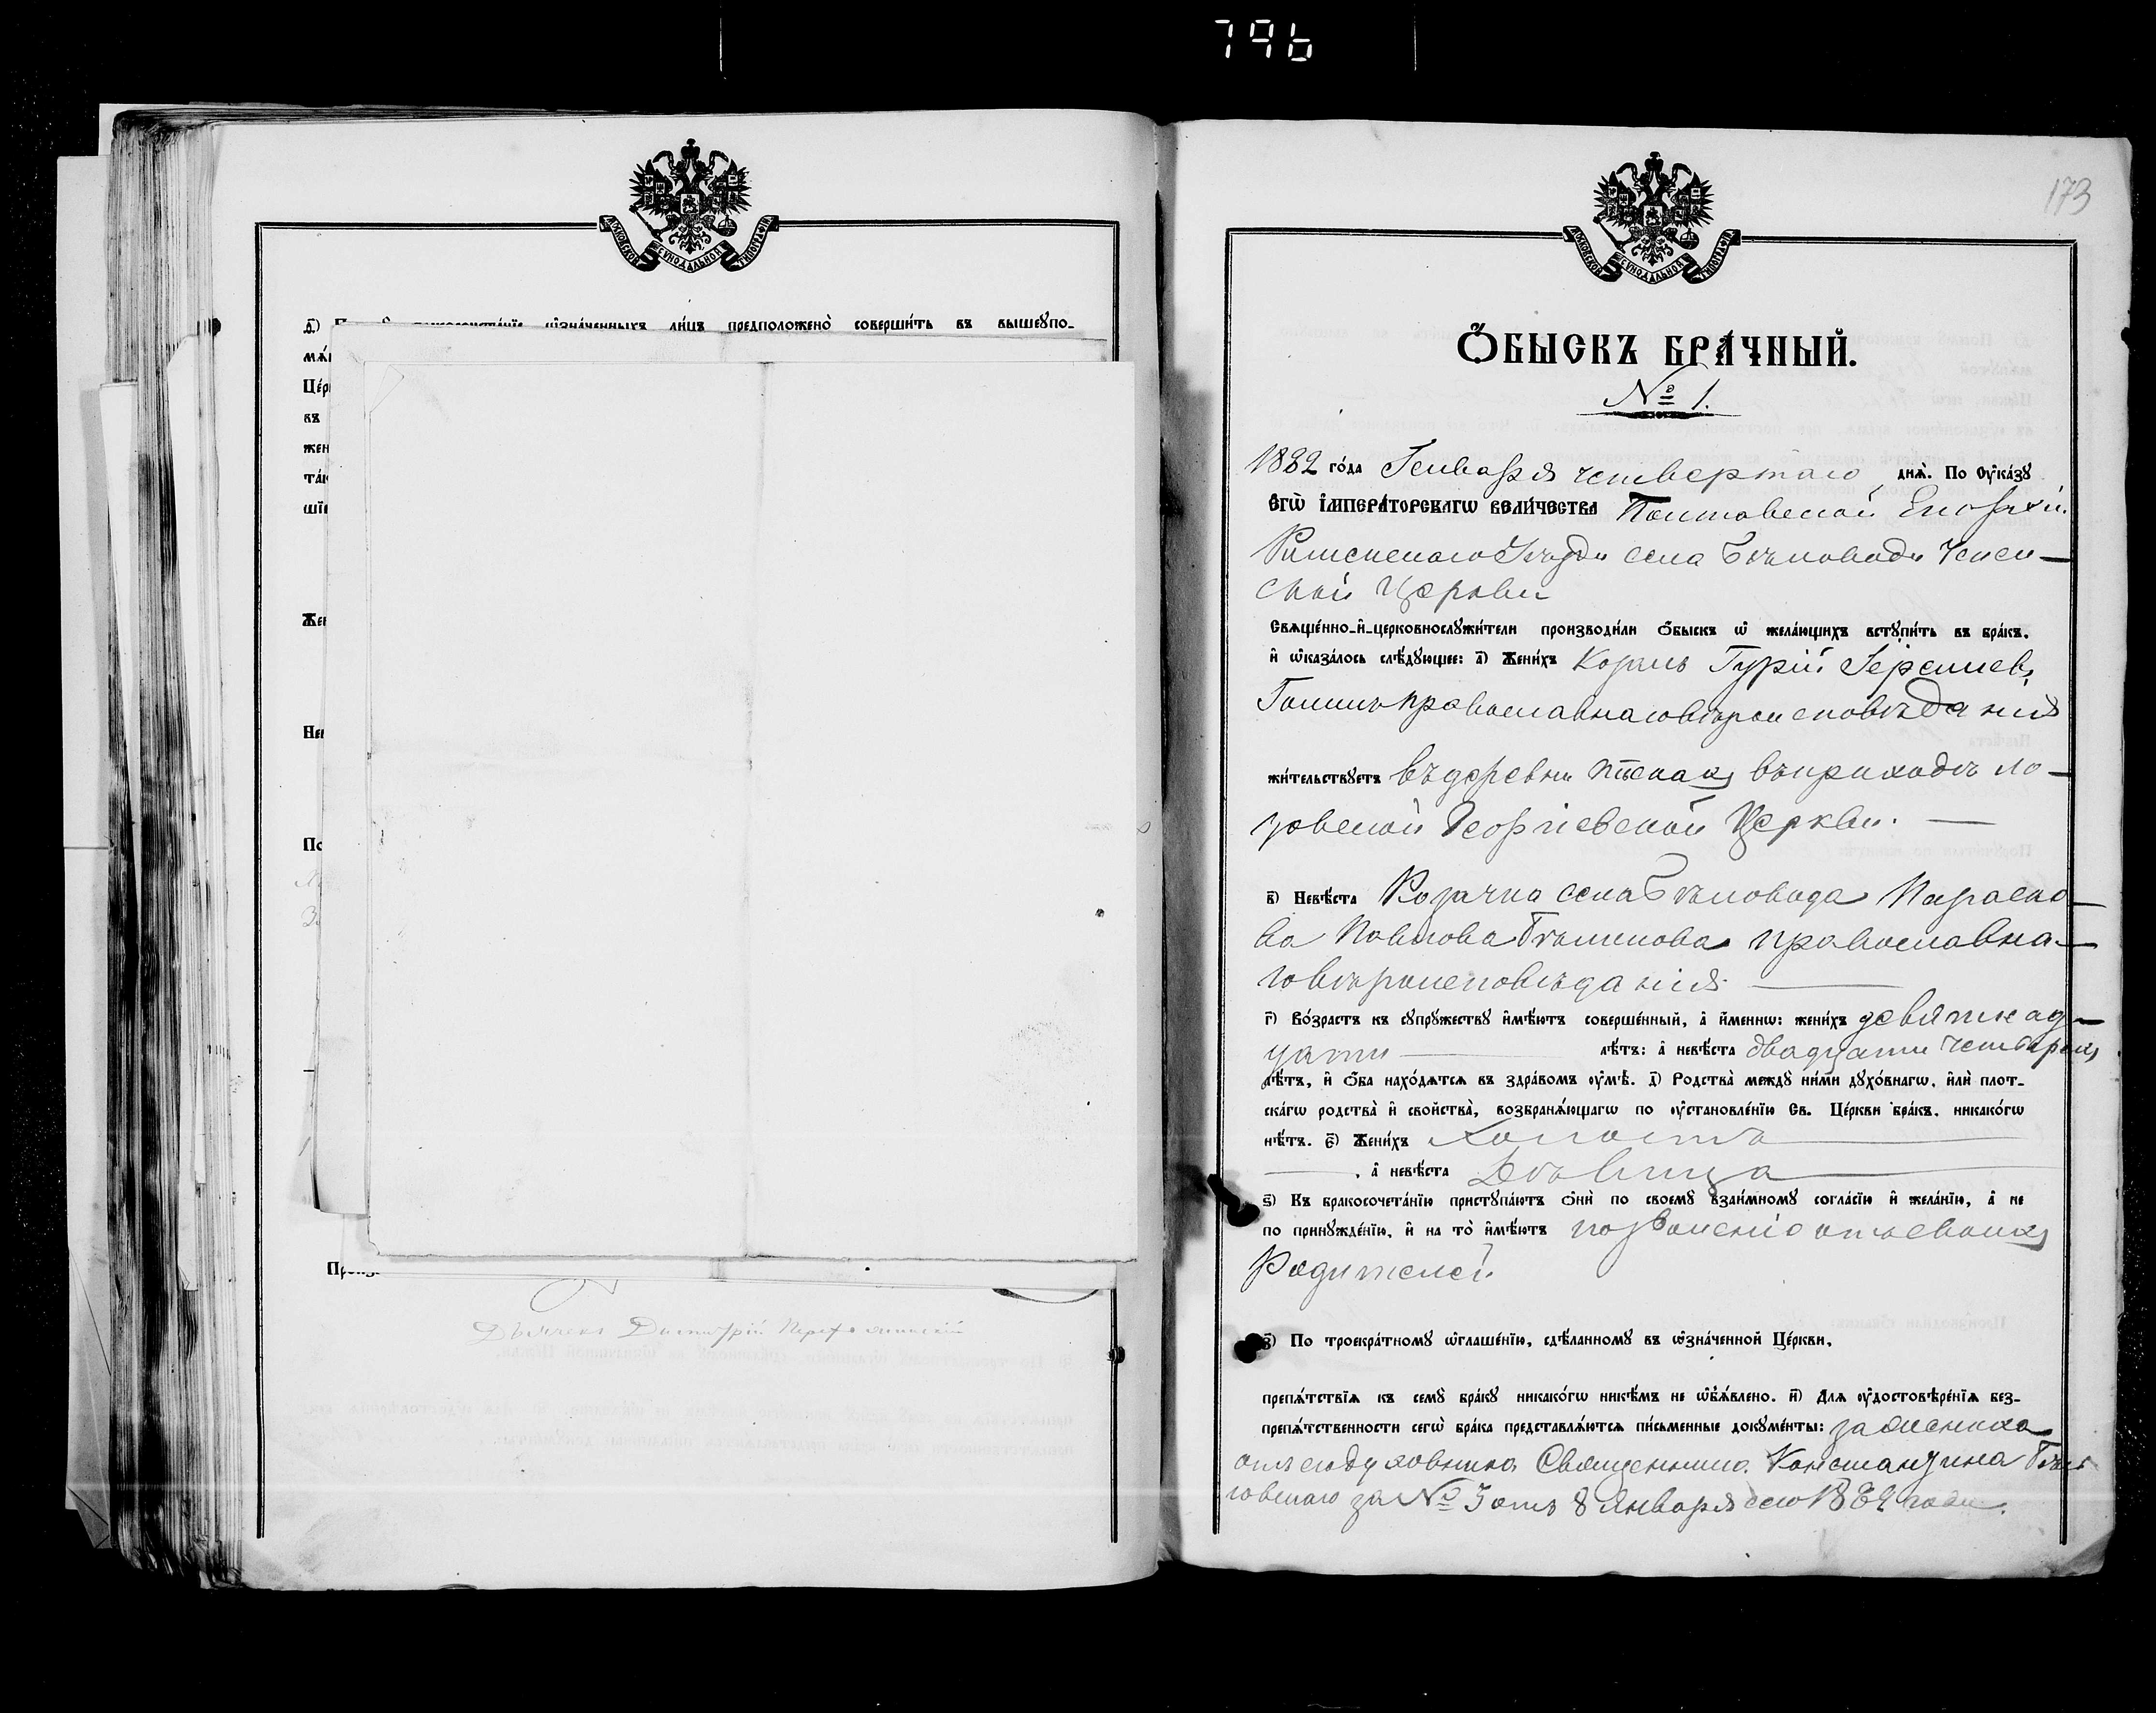 796
МОСКОВСКОЙ СѴНОДАЛЬНОЙ ТИПОГРАФІИ
бракосочета́нїе ѡ҆зна́ченныхъ ли́цъ предположено̀ соверши́ть въ вышеꙋпо-
мѧ́
Це́р
въ
жен
та́к
шї
Жен
Не
По
Дьячекъ Димитрій
173
МОСКОВСКОЙ СѴНОДАЛЬНОЙ ТИПОГРАФІИ
Ѻ҆БЫСКЪ БРА́ЧНЫЙ.
№ 1.
1882 го́да Генваря четвертаго днѧ̀. По ᲂу҆ка́зꙋ
Е҆ГѠ̀ І҆МПЕРА́ТОРСКАГѠ ВЕЛИ́ЧЕСТВА Полтавской Епархіи
Роменскаго Уѣзда села Бѣловода Успен-
ской Церкви
Свѧще́нно-и҆-церковнослꙋжи́тели производи́ли ѻ҆́быскъ ѡ҆ жела́ющихъ встꙋпи́ть въ бра́къ,
и҆ ѡ҆каза́лось слѣ́дꙋющее: а҃) Жени́хъ Козакъ Гурій
православнаго вѣроисповѣданія
жи́тельствꙋетъ въ деревни Пѣскахъ въ приходѣ Ло-
зовской Георгіевской Церкви.
в҃) Невѣ́ста Козачка села Бѣловода Параско-
ва Павлова православна-
го вѣроисповѣданія
г҃) Во́зрастъ къ сꙋпрꙋ́жествꙋ и҆мѣ́ютъ соверше́нный, а҆ и҆́меннѡ: жени́хъ девятнад-
цати лѣ́тъ: а҆ невѣ́ста двадцати четырехъ
лѣ́тъ, и҆ ѻ҆́ба нахо́дѧтсѧ въ здра́вомъ ᲂу҆мѣ̀. д҃) Родства̀ междꙋ̀ ни́ми дꙋхо́внагѡ, и҆лѝ плот-
ска́гѡ родства̀ и҆ свойства̀, возбранѧ́ющагѡ по ᲂу҆становле́нїю Св. Це́ркви бра́къ, никако́гѡ
нѣ́тъ. є҃) Жени́хъ холостъ
, а҆ невѣ́ста Дѣвица
ѕ҃) Къ бракосочета́нїю пристꙋпа́ютъ ѻ҆нѝ по своемꙋ̀ взаи́мномꙋ согла́сїю и҆ жела́нїю, а҆ не
по принꙋжде́нїю, и҆ на то̀ и҆мѣ́ютъ позволеніе отъ своихъ
Родителей
з҃) По троекра́тномꙋ ѡ҆глаше́нїю, сдѣ́ланномꙋ въ ѡ҆зна́ченной Це́ркви,
препѧ́тствїѧ къ семꙋ̀ бра́кꙋ никако́гѡ никѣ́мъ не ѡ҆б̾ѧ́влено. и҃) Длѧ ᲂу҆достовѣре́нїѧ без-
препѧ́тственности сегѡ̀ бра́ка представлѧ́ютсѧ пи́сьменные докꙋме́нты: за жениха
отъ его духовника Священника Константина
за № 3 отъ 8 Января сего 1882 года.